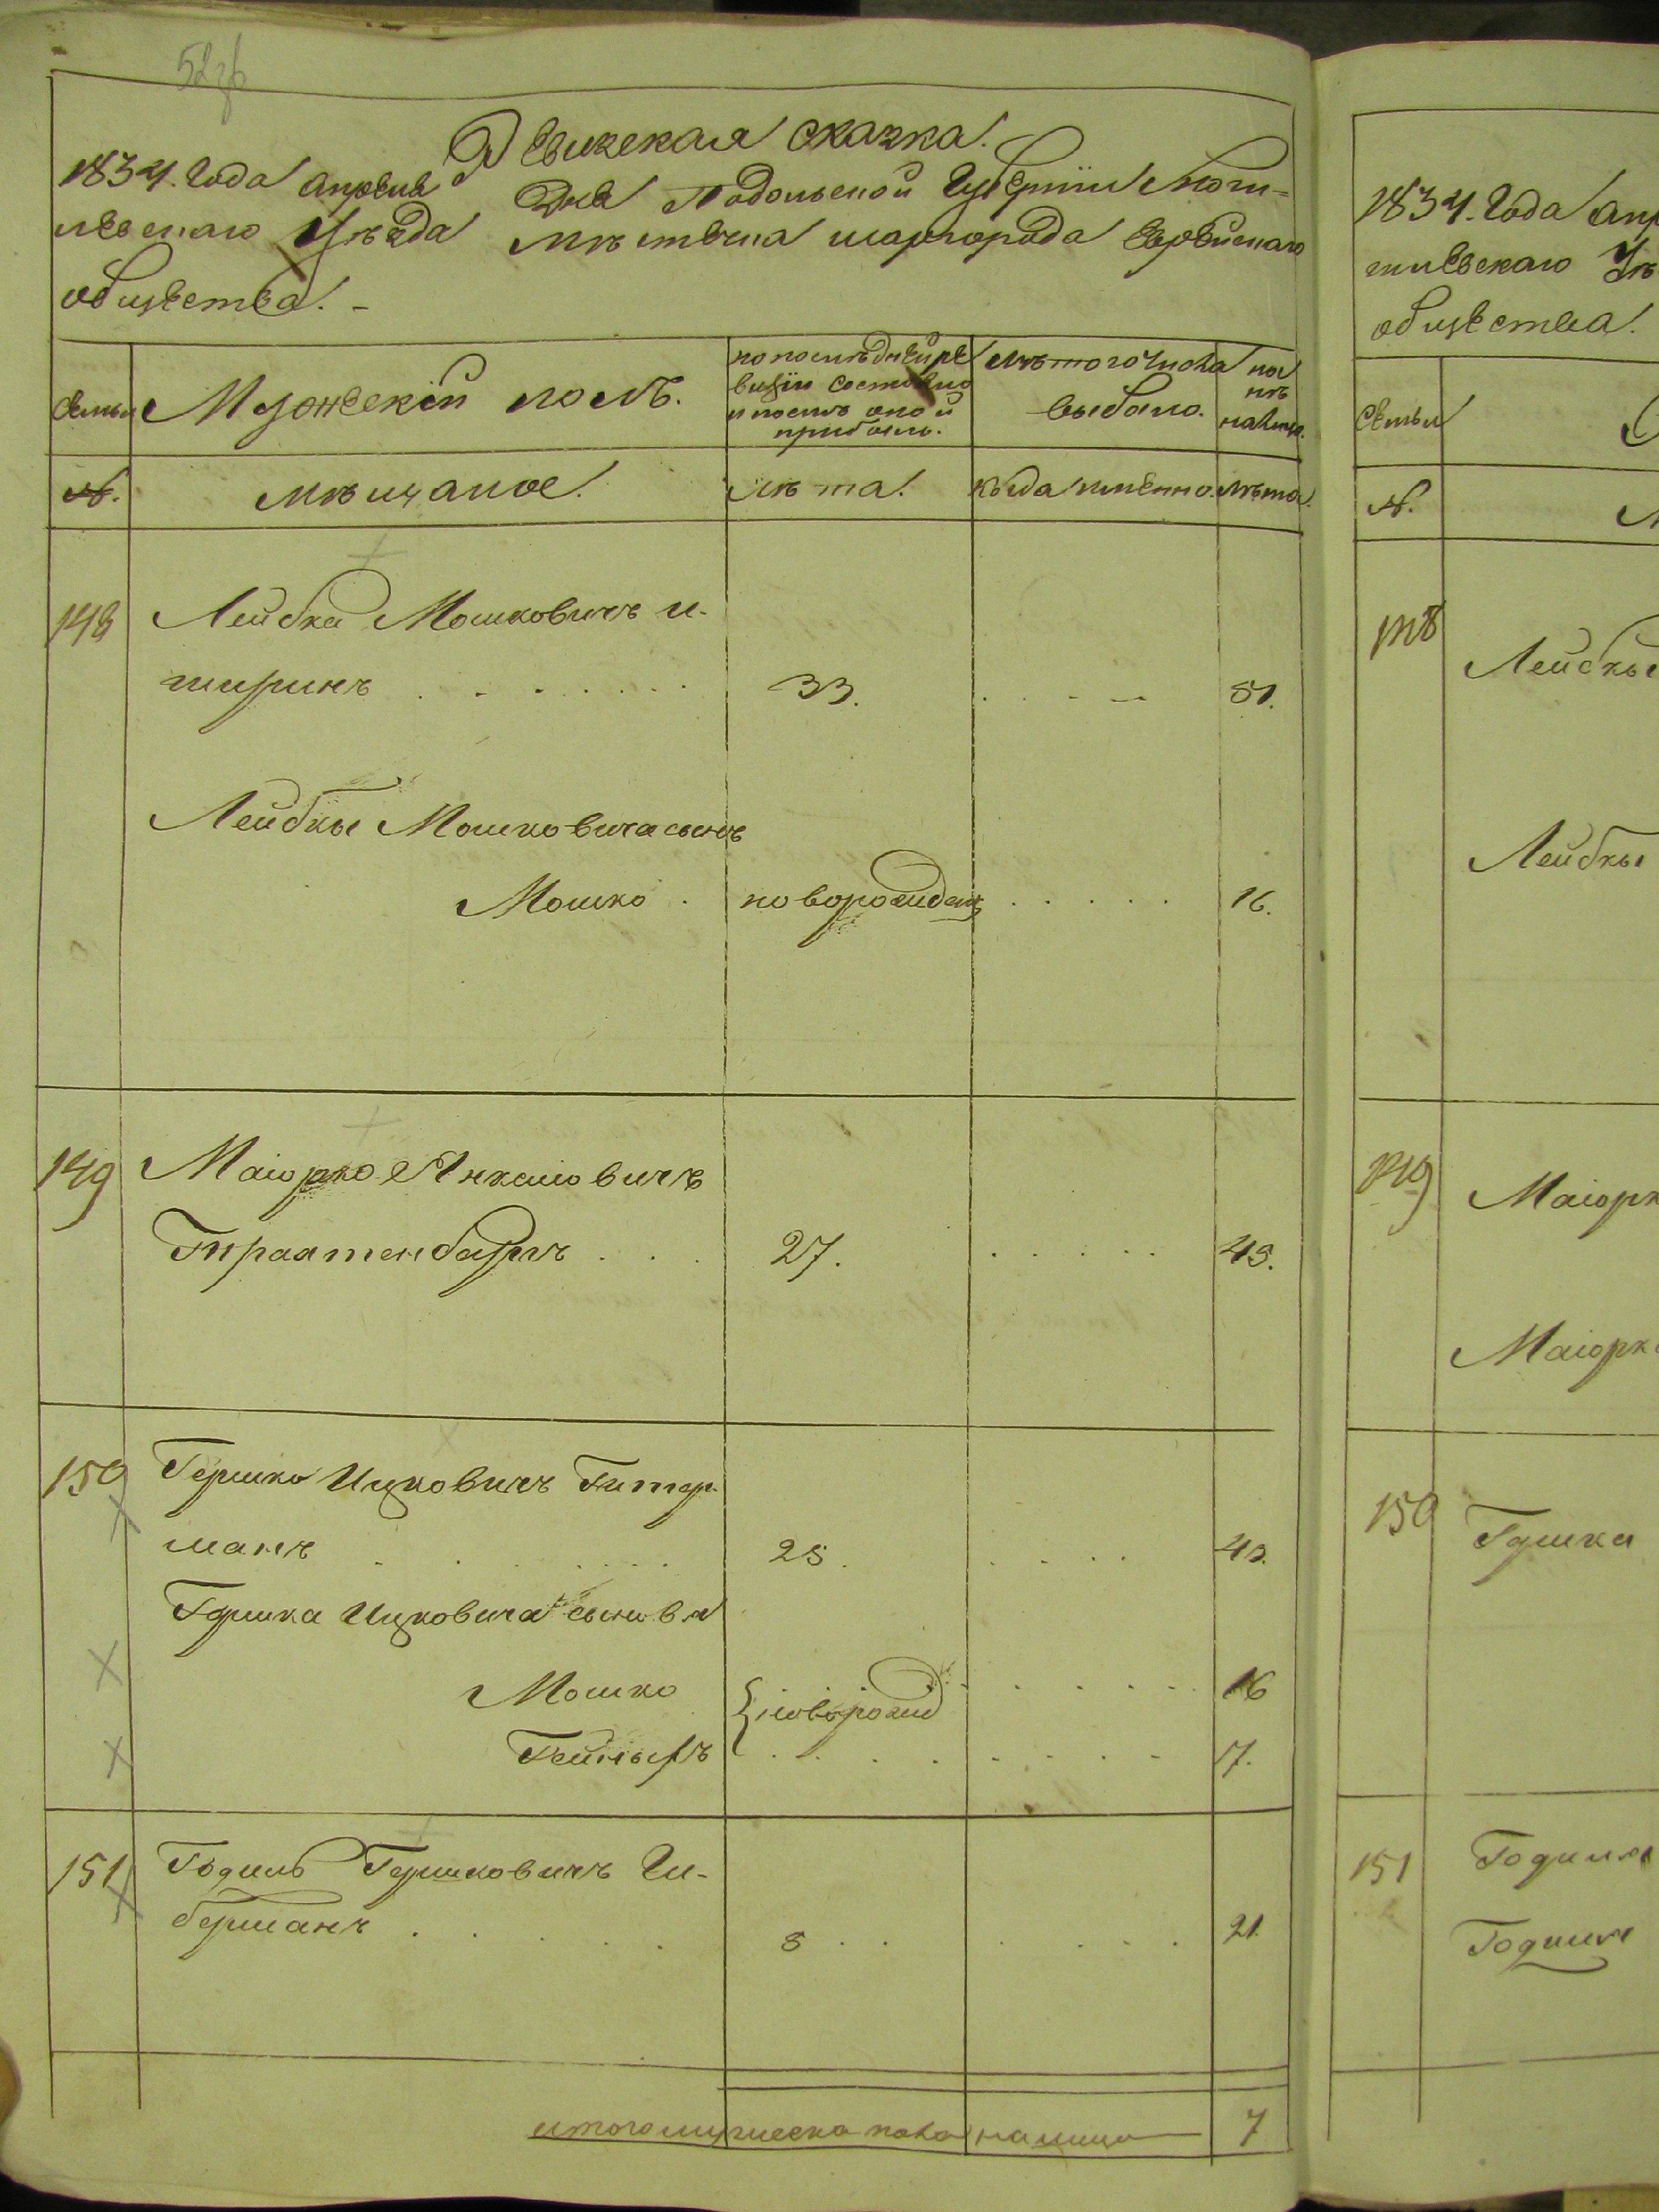 52 об
Ревизская сказка.
1834. Года Апреля Дня Подольской Губернии Моги-
левскаго Уезда Мѣстечка Шаргорода Еврейскаго
общества. -
Семьи
Мужескiй полъ.
по последней ре
визiи состояло
и после оной
прибыло.
Изъ того числа
выбыло.
ны
нѣ
налицо.
№.
Мѣщаное.
Лѣта.
Когда именно.
Лѣта.
148
Лейбка Мошковичъ
. . . . . . . 33. . . . . 51.
Лейбки Мошковича сынъ
Мошко . новорожден . . . . . 16.
149
Маiорко Янкелiовичъ
. . . 27. . . . . . 45.
150
Гершко Ицковичъ Гитер-
манъ . . . . . . 25. . . . . 43.
Гершка Ицковича сыновья
Мошко { новорожд . . . . . 16
. . . . . . . . 7.
151
Годиль Гершковичъ Ли-
берманъ . . . . . 3 . . . . . . 21.
итого мужеска пола налицо 7
1834. Года Апр
гилевскаго Уѣ
общества.
Семьи
№.
148
Лейбки
Лейбки
149
Маiорк
Маiорк
150
Гершка
151
Годиля
Годиля